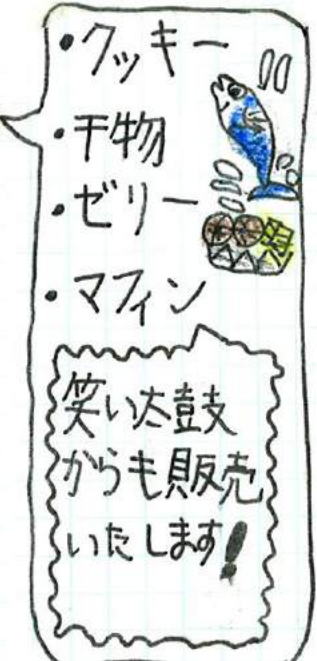 ・クッキー
・干物
・ゼリー
・マフィン
笑い太鼓
からも販売
いたします!